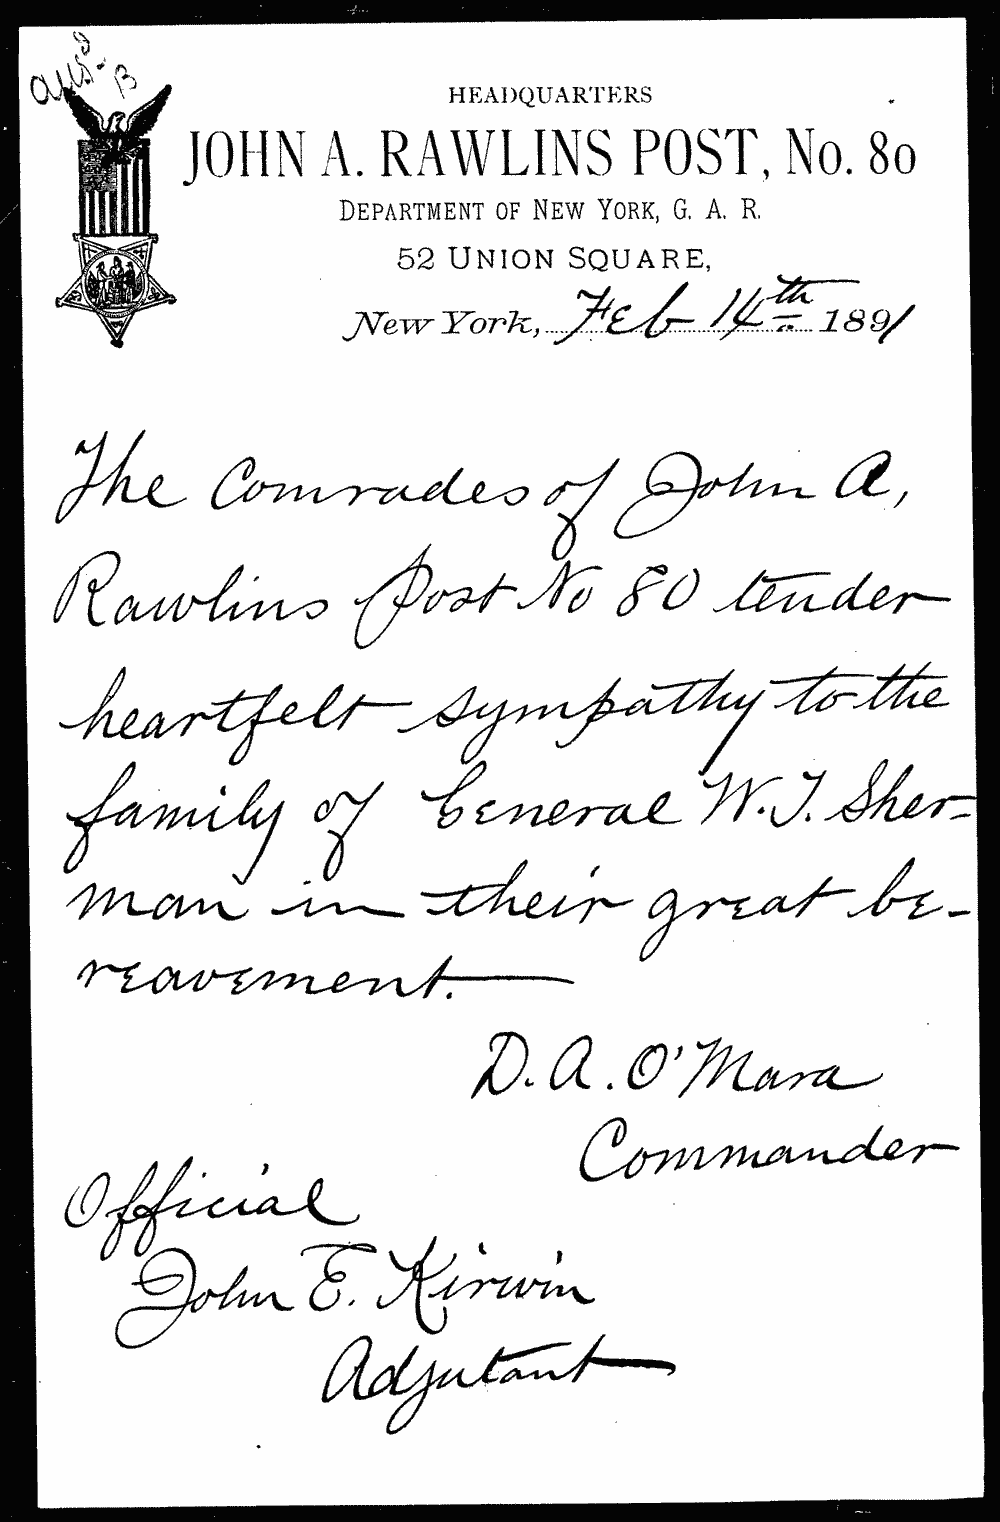 Ans. B
HEADQUARTERS
JOHN A. RAWLINS POST, No. 80
DEPARTMENT OF NEW YORK, G. A. R.
52 UNION SQUARE,
New York, Feb 14th 1891
The Comrades of John A,
Rawlins Post No 80 tender
heartfelt sympathy to the
family of General W. T. Sher-
man in their great be-
reavement.
D. A. O'Mara
Commander
Official
John E. Kirwin
Adjutant